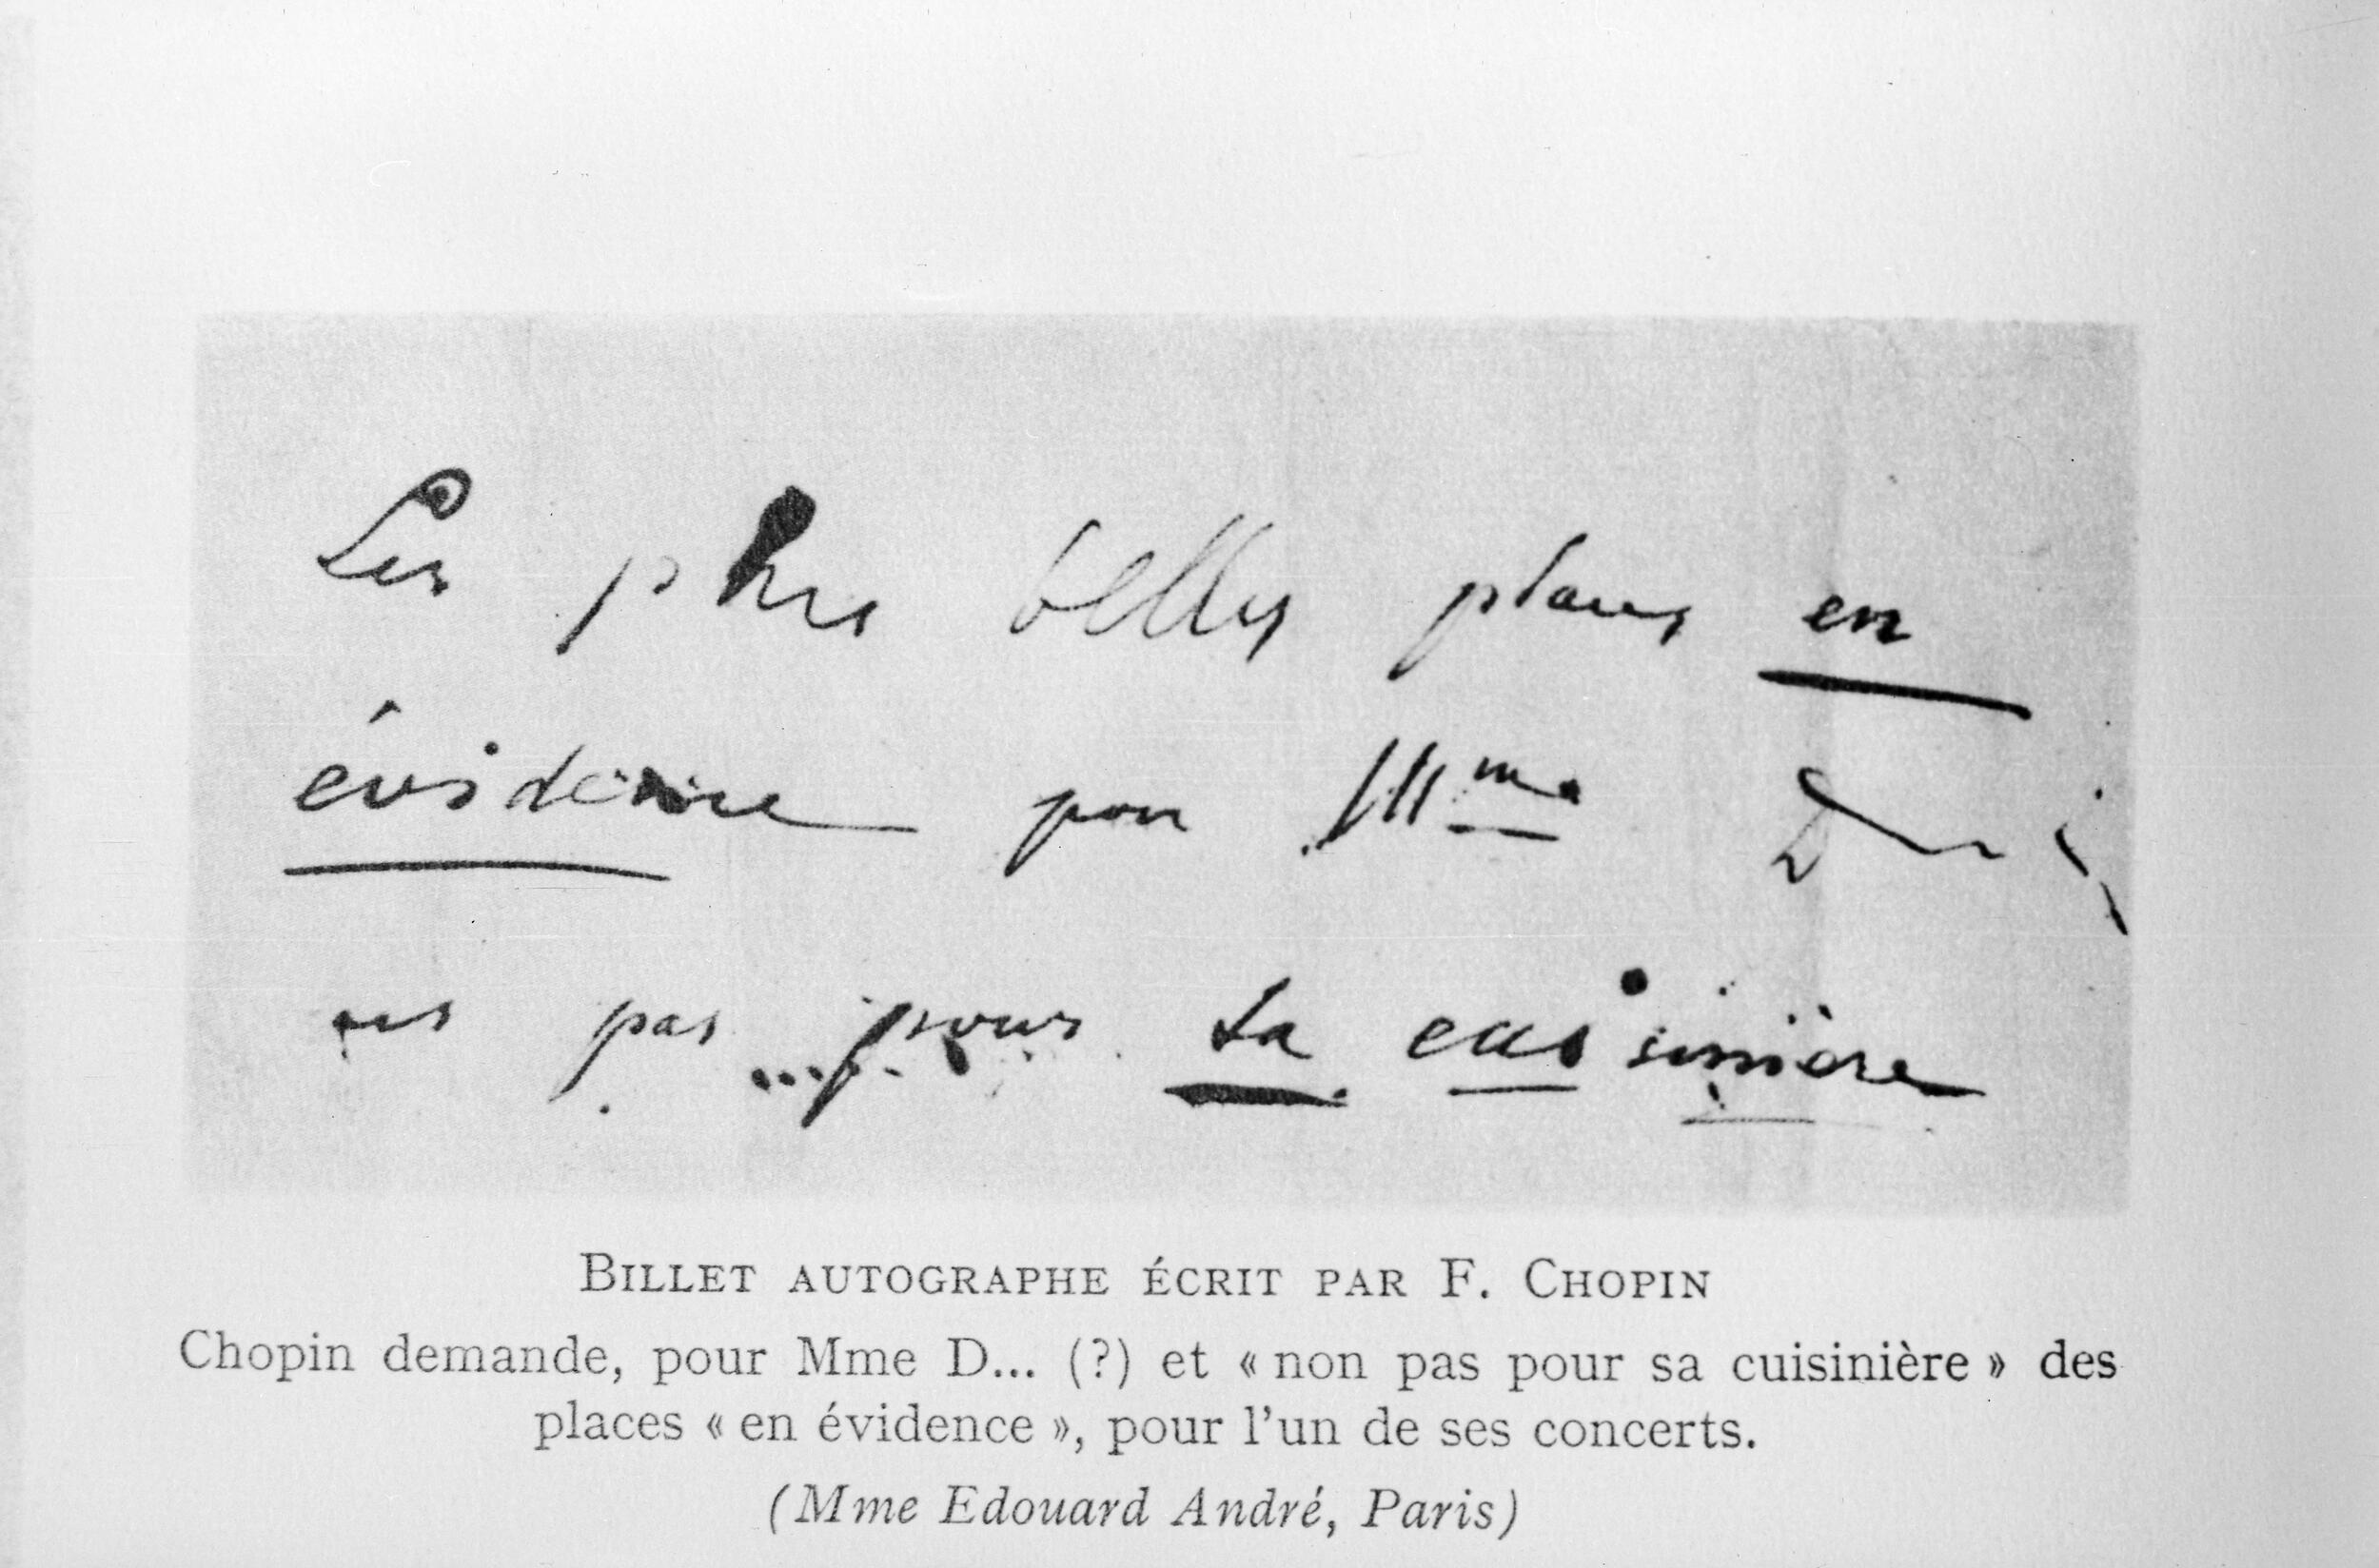 Les plus belles places en
évidence pour Mme D
pas pour sa cuisinière
BILLET AUTOGRAPHE ÉCRIT PAR F. CHOPIN
Chopin demande, pour Mme D... (?) et « non pas pour sa cuisinière » des
places « en évidence », pour l'un de ses concerts.
(Mme Edouard André, Paris)